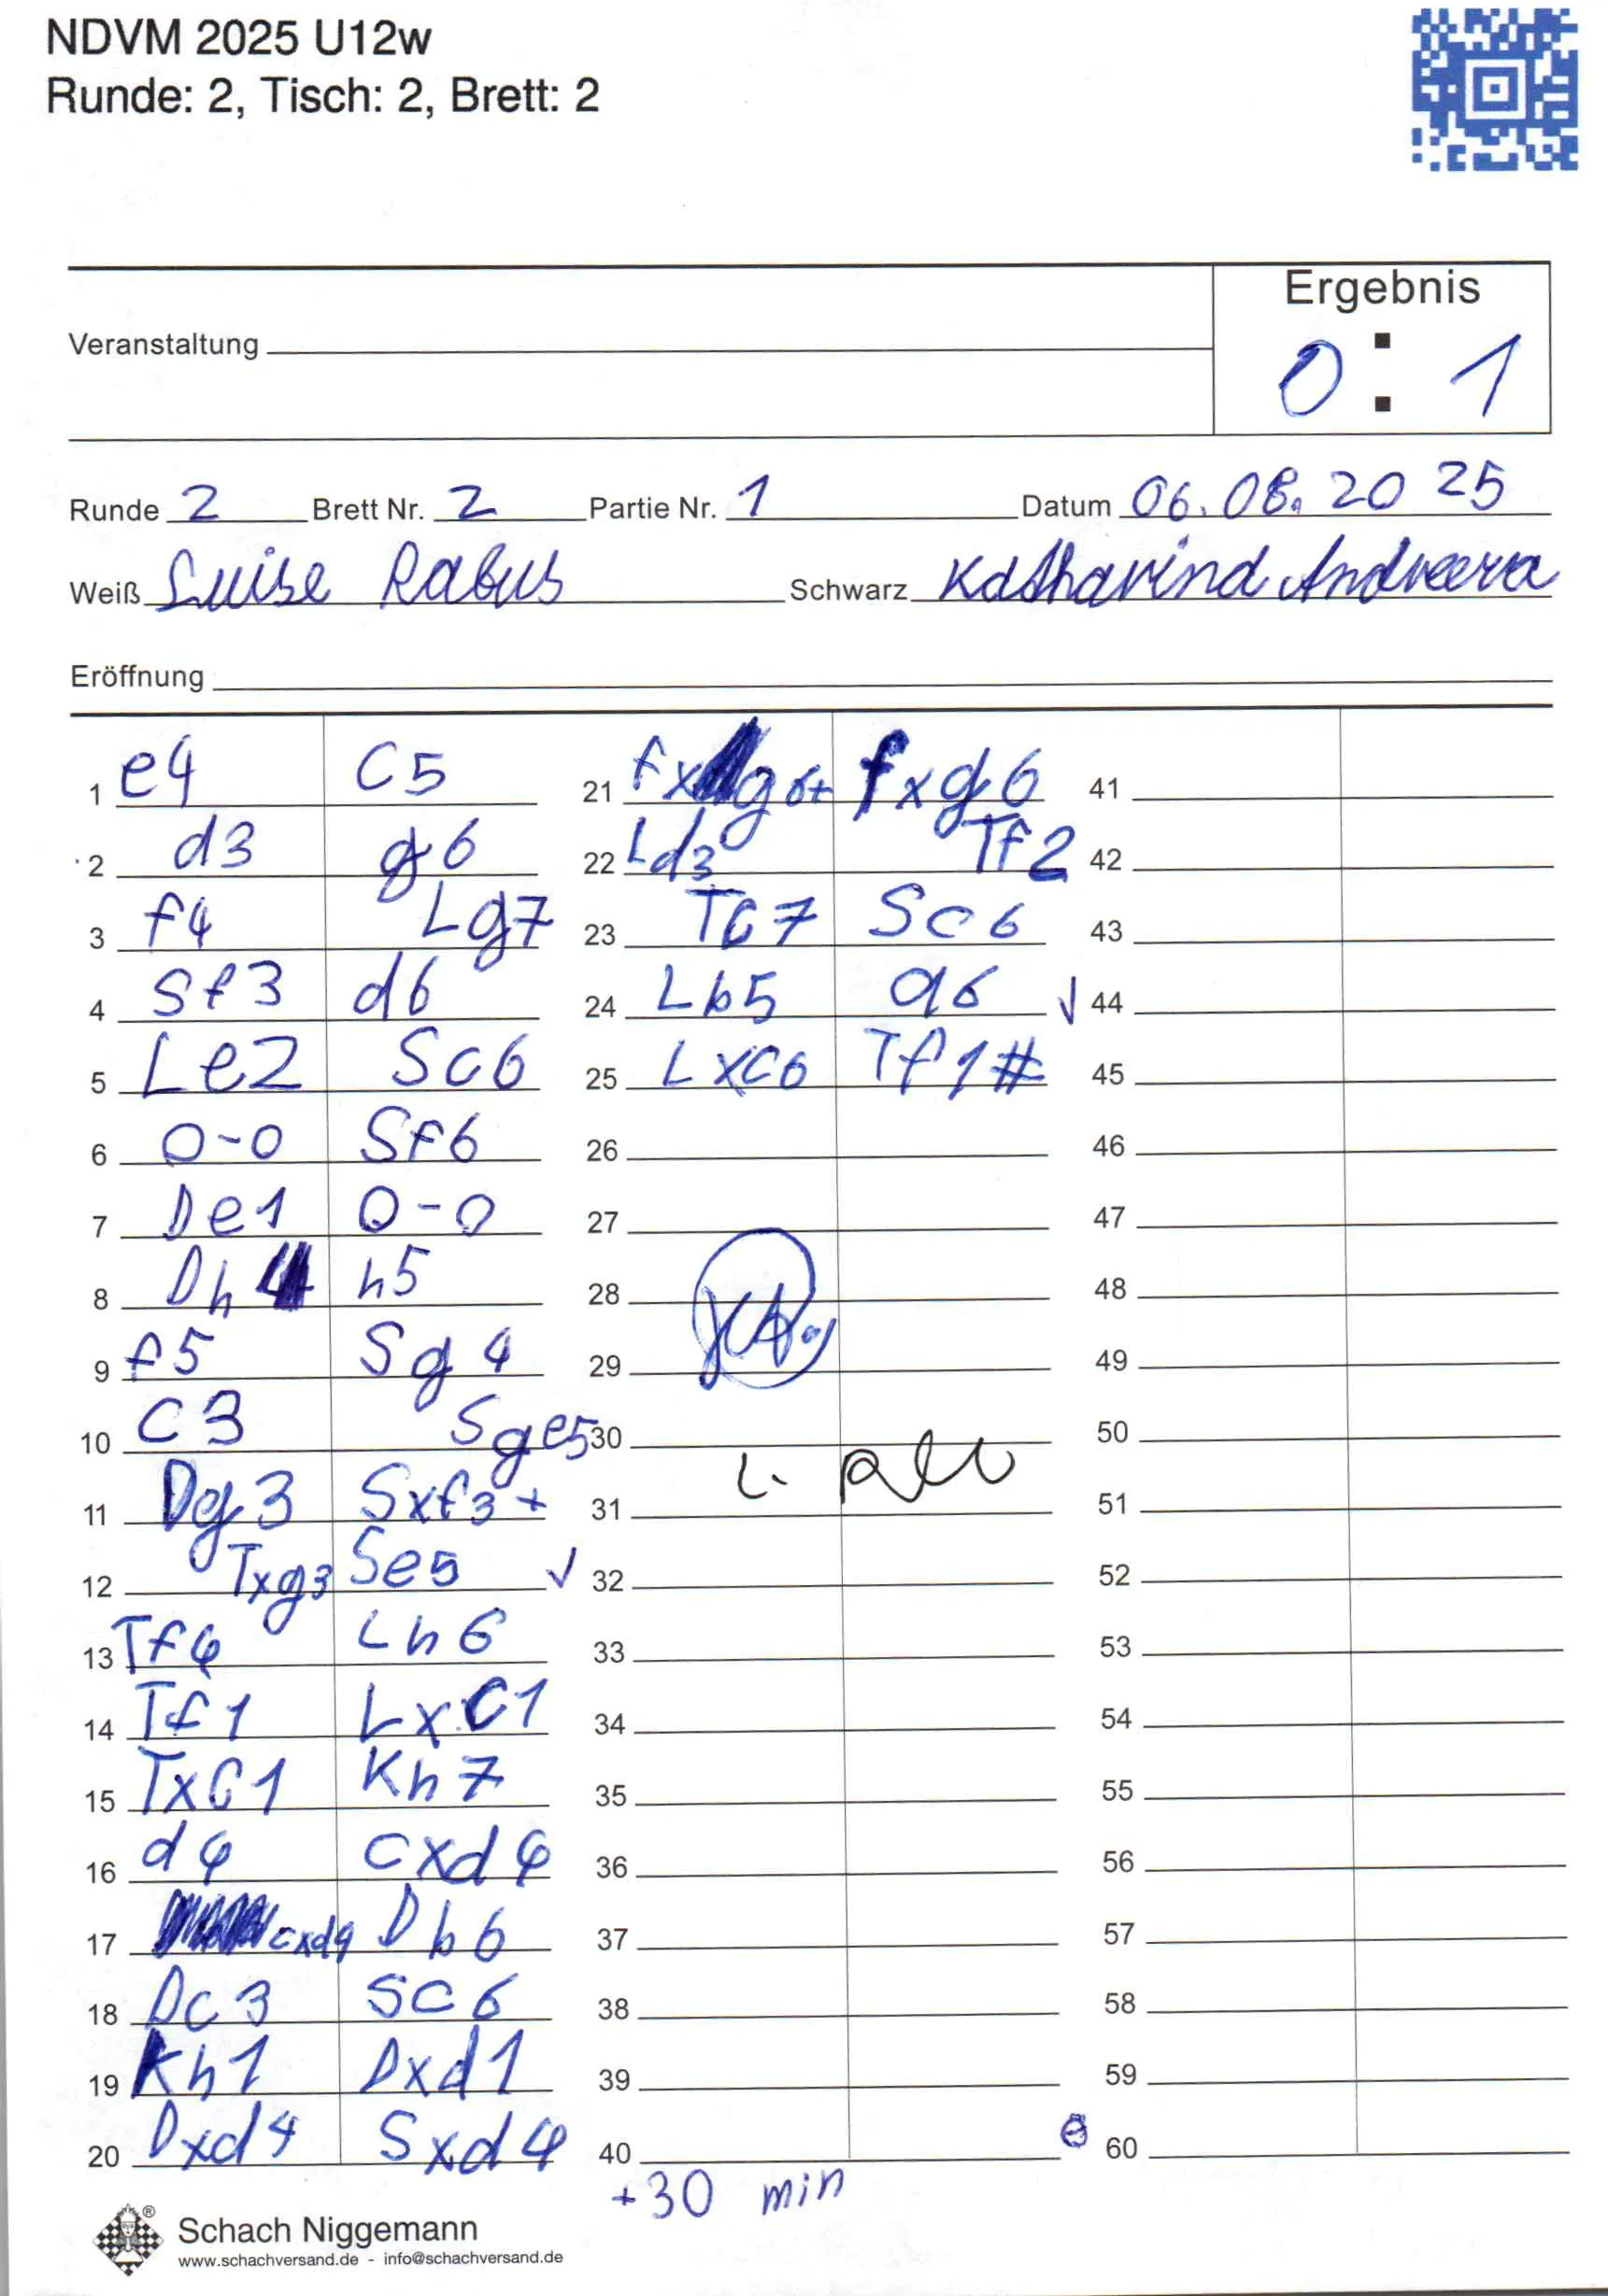 NDVM 2025 U12w
Runde: 2, Tisch: 2, Brett: 2
Ergebnis
Veranstaltung
0 : 1
Runde 2 Brett Nr. 2 Partie Nr. 1 Datum 06.08.2025
Weiß Luise Rabus Schwarz Katharina Andreeva
Eröffnung
1 e4 c5
2 d3 g6
3 f4 Lg7
4 Sf3 d6
5 Le2 Sc6
6 0-0 Sf6
7 De1 0-0
8 Dh4 h5
9 f5 Sg4
10 c3 Sge5
11 Dg3 Sxf3+
12 Txg3 Se5 ✓
13 Tf4 Lh6
14 Tf1 Lxc1
15 Txc1 Kh7
16 d4 cxd4
17 cxd4 Db6
18 Dc3 Sc6
19 Kh1 Dxd1
20 Dxd4 Sxd4
21 fxg6+ fxg6
22 Ld3 Tf2
23 Tc7 Sc6
24 Lb5 a6 ✓
25 Lxc6 Tf1#
26
27
28
29
30
31
32
33
34
35
36
37
38
39
40
+30 min
41
42
43
44
45
46
47
48
49
50
51
52
53
54
55
56
57
58
59
60
Schach Niggemann
www.schachversand.de - info@schachversand.de